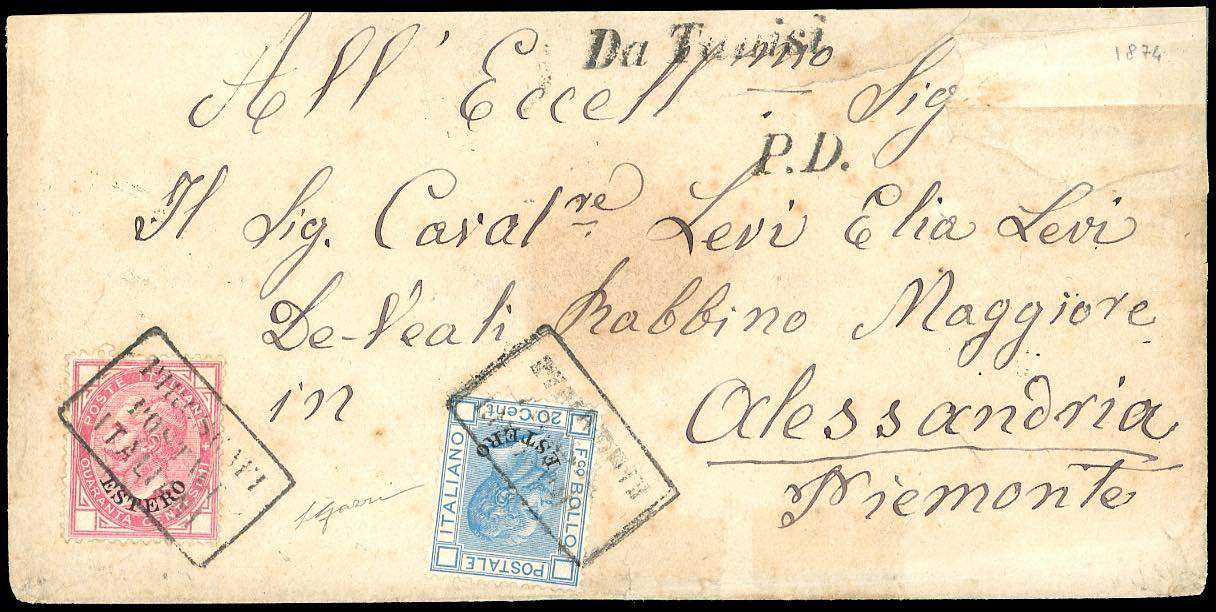 Da Tunisi
1874
All' Eccellmo Sig
P.D.
Il Sig. Cavalre Levi Elia Levi
De-Veali Rabbino Maggiore
in Alessandria
Piemonte
POSTE ITALIANE
ESTERO
QUARANTA CENTESIMI
PIROSCAFI
POSTALI
ITALIANI
20 Cent
F.co BOLLO
POSTALE
ITALIANO
ESTERO
PIROSCAFI